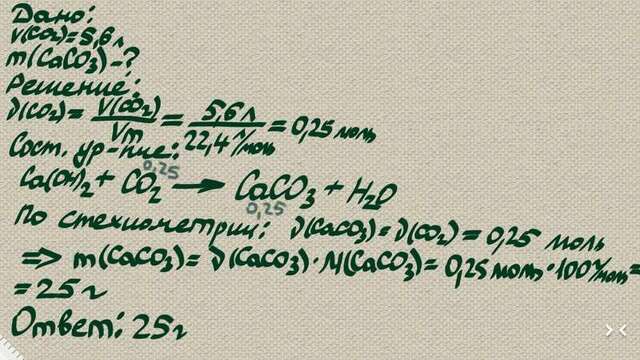 Дано:
V(CO₂)=5,6л
m(CaCO₃)-?
Решение:
ν(CO₂)= V(CO₂)/Vm = 5,6л/22,4л/моль = 0,25моль
Сост. ур-ние:
0,25
Ca(OH)₂+ CO₂ → CaCO₃ + H₂O
0,25
По стехиометрии: ν(CaCO₃)=ν(CO₂)=0,25 моль
=> m(CaCO₃)= ν(CaCO₃)·M(CaCO₃)= 0,25моль·100г/моль=
=25г
Ответ: 25г